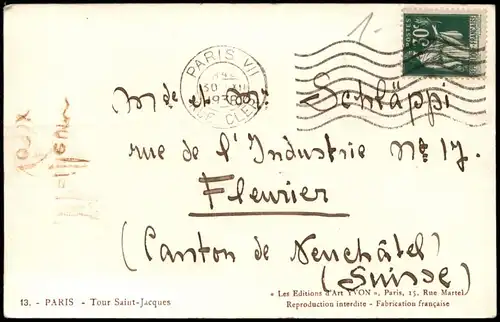 PARIS VII
1938
POSTES 30c
Mde et Mr Schläppi
rue de l'Industrie No 17.
Fleurier
(Canton de Neuchâtel)
(Suisse)
13. - PARIS - Tour Saint-Jacques
« Les Editions d'Art YVON », Paris, 15, Rue Martel
Reproduction interdite - Fabrication française